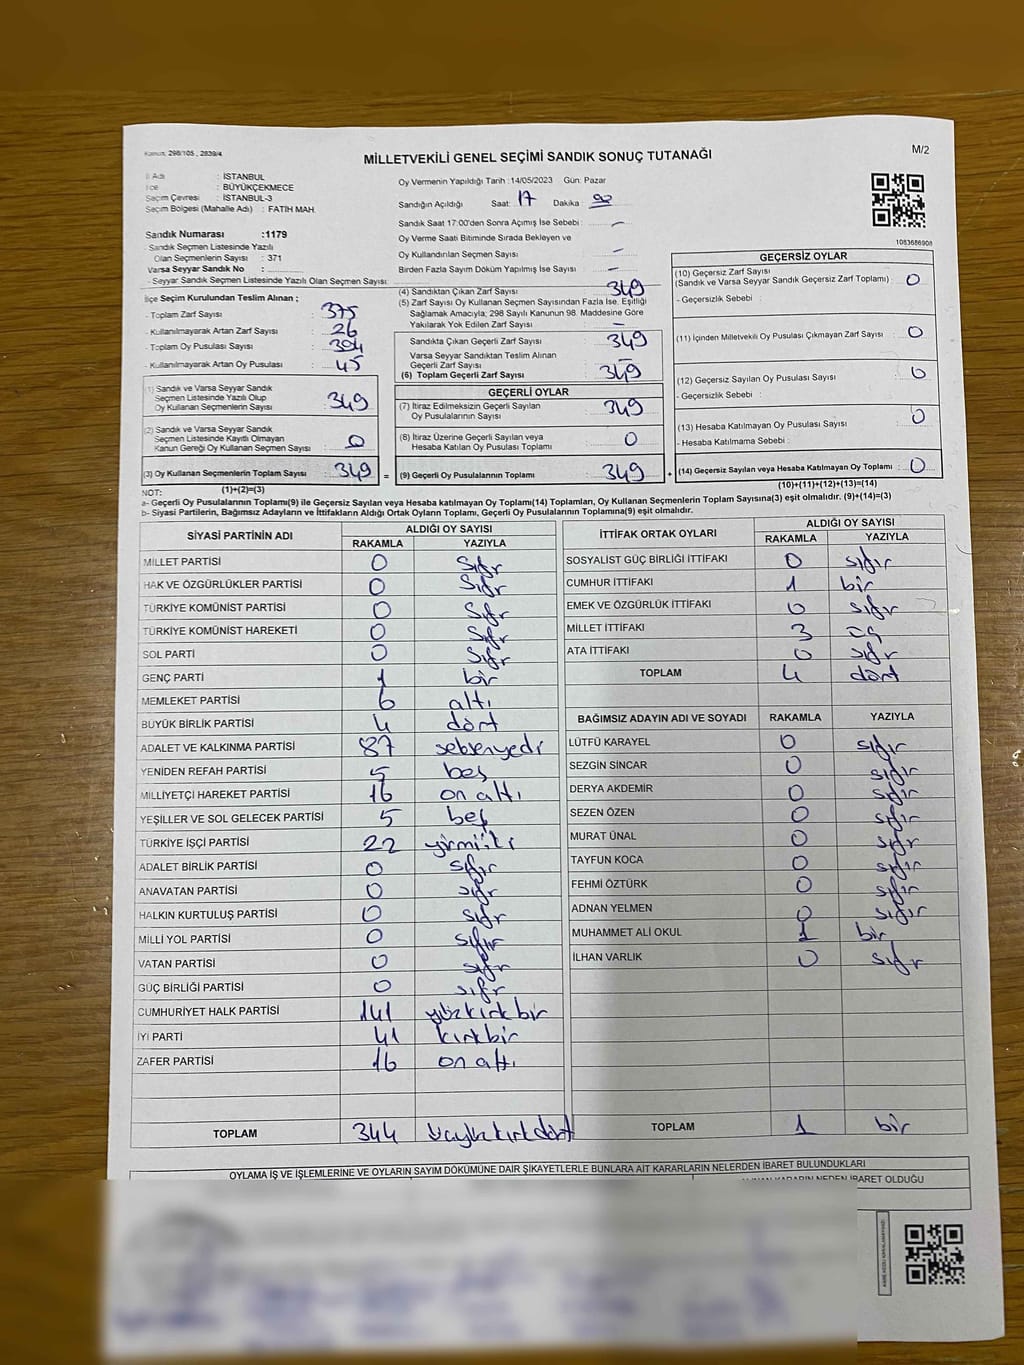 Kanun, 298/105 , 2839/4
MİLLETVEKİLİ GENEL SEÇİMİ SANDIK SONUÇ TUTANAĞI
M/2
İl Adı : İSTANBUL
İlçe : BÜYÜKÇEKMECE
Seçim Çevresi : İSTANBUL-3
Seçim Bölgesi (Mahalle Adı) : FATİH MAH.
Sandık Numarası :1179
- Sandık Seçmen Listesinde Yazılı
Olan Seçmenlerin Sayısı : 371
Varsa Seyyar Sandık No :
- Seyyar Sandık Seçmen Listesinde Yazılı Olan Seçmen Sayısı:
Oy Vermenin Yapıldığı Tarih :14/05/2023 Gün: Pazar
Sandığın Açıldığı Saat: 17 Dakika
Sandık Saat 17:00'den Sonra Açımış İse Sebebi : -
Oy Verme Saati Bitiminde Sırada Bekleyen ve
Oy Kullandırılan Seçmen Sayısı : -
Birden Fazla Sayım Döküm Yapılmış İse Sayısı : -
1083686908
İlçe Seçim Kurulundan Teslim Alınan ;
- Toplam Zarf Sayısı : 375
- Kullanılmayarak Artan Zarf Sayısı : 26
- Toplam Oy Pusulası Sayısı : 394
- Kullanılmayarak Artan Oy Pusulası : 45
(1) Sandık ve Varsa Seyyar Sandık
Seçmen Listesinde Yazılı Olup
Oy Kullanan Seçmenlerin Sayısı : 349
(2) Sandık ve Varsa Seyyar Sandık
Seçmen Listesinde Kayıtlı Olmayan
Kanun Gereği Oy Kullanan Seçmen Sayısı : 0
(3) Oy Kullanan Seçmenlerin Toplam Sayısı : 349 =
(1)+(2)=(3)
(4) Sandıktan Çıkan Zarf Sayısı : 349
(5) Zarf Sayısı Oy Kullanan Seçmen Sayısından Fazla İse, Eşitliği
Sağlamak Amacıyla; 298 Sayılı Kanunun 98. Maddesine Göre
Yakılarak Yok Edilen Zarf Sayısı : -
Sandıkta Çıkan Geçerli Zarf Sayısı : 349
Varsa Seyyar Sandıktan Teslim Alınan
Geçerli Zarf Sayısı : -
(6) Toplam Geçerli Zarf Sayısı : 349
GEÇERLİ OYLAR
(7) İtiraz Edilmeksizin Geçerli Sayılan
Oy Pusulalarının Sayısı : 349
(8) İtiraz Üzerine Geçerli Sayılan veya
Hesaba Katılan Oy Pusulası Toplamı : 0
(9) Geçerli Oy Pusulalarının Toplamı : 349 +
GEÇERSİZ OYLAR
(10) Geçersiz Zarf Sayısı
(Sandık ve Varsa Seyyar Sandık Geçersiz Zarf Toplamı) : 0
- Geçersizlik Sebebi :
(11) İçinden Milletvekili Oy Pusulası Çıkmayan Zarf Sayısı : 0
(12) Geçersiz Sayılan Oy Pusulası Sayısı : 0
- Geçersizlik Sebebi :
(13) Hesaba Katılmayan Oy Pusulası Sayısı : 0
- Hesaba Katılmama Sebebi :
(14) Geçersiz Sayılan veya Hesaba Katılmayan Oy Toplamı : 0
(10)+(11)+(12)+(13)=(14)
NOT:
a- Geçerli Oy Pusulalarının Toplamı(9) ile Geçersiz Sayılan veya Hesaba katılmayan Oy Toplamı(14) Toplamları, Oy Kullanan Seçmenlerin Toplam Sayısına(3) eşit olmalıdır. (9)+(14)=(3)
b- Siyasi Partilerin, Bağımsız Adayların ve İttifakların Aldığı Ortak Oyların Toplamı, Geçerli Oy Pusulalarının Toplamına(9) eşit olmalıdır.
SİYASİ PARTİNİN ADI ALDIĞI OY SAYISI
RAKAMLA YAZIYLA
MİLLET PARTİSİ 0 sıfır
HAK VE ÖZGÜRLÜKLER PARTİSİ 0 sıfır
TÜRKİYE KOMÜNİST PARTİSİ 0 sıfır
TÜRKİYE KOMÜNİST HAREKETİ 0 sıfır
SOL PARTİ 0 sıfır
GENÇ PARTİ 1 bir
MEMLEKET PARTİSİ 6 altı
BÜYÜK BİRLİK PARTİSİ 4 dört
ADALET VE KALKINMA PARTİSİ 87 seksenyedi
YENİDEN REFAH PARTİSİ 5 beş
MİLLİYETÇİ HAREKET PARTİSİ 16 on altı
YEŞİLLER VE SOL GELECEK PARTİSİ 5 beş
TÜRKİYE İŞÇİ PARTİSİ 22 yirmiiki
ADALET BİRLİK PARTİSİ 0 sıfır
ANAVATAN PARTİSİ 0 sıfır
HALKIN KURTULUŞ PARTİSİ 0 sıfır
MİLLİ YOL PARTİSİ 0 sıfır
VATAN PARTİSİ 0 sıfır
GÜÇ BİRLİĞİ PARTİSİ 0 sıfır
CUMHURİYET HALK PARTİSİ 141 yüzkırkbir
İYİ PARTİ 41 kırkbir
ZAFER PARTİSİ 16 on altı
TOPLAM 344
İTTİFAK ORTAK OYLARI ALDIĞI OY SAYISI
RAKAMLA YAZIYLA
SOSYALİST GÜÇ BİRLİĞİ İTTİFAKI 0 sıfır
CUMHUR İTTİFAKI 1 bir
EMEK VE ÖZGÜRLÜK İTTİFAKI 0 sıfır
MİLLET İTTİFAKI 3 üç
ATA İTTİFAKI 0 sıfır
TOPLAM 4 dört
BAĞIMSIZ ADAYIN ADI VE SOYADI RAKAMLA YAZIYLA
LÜTFÜ KARAYEL 0 sıfır
SEZGİN SİNCAR 0 sıfır
DERYA AKDEMİR 0 sıfır
SEZEN ÖZEN 0 sıfır
MURAT ÜNAL 0 sıfır
TAYFUN KOCA 0 sıfır
FEHMİ ÖZTÜRK 0 sıfır
ADNAN YELMEN 0 sıfır
MUHAMMET ALİ OKUL 1 bir
İLHAN VARLIK 0 sıfır
TOPLAM 1 bir
OYLAMA İŞ VE İŞLEMLERİNE VE OYLARIN SAYIM DÖKÜMÜNE DAİR ŞİKAYETLERLE BUNLARA AİT KARARLARIN NELERDEN İBARET BULUNDUKLARI
KARARIN NEDEN İBARET OLDUĞU